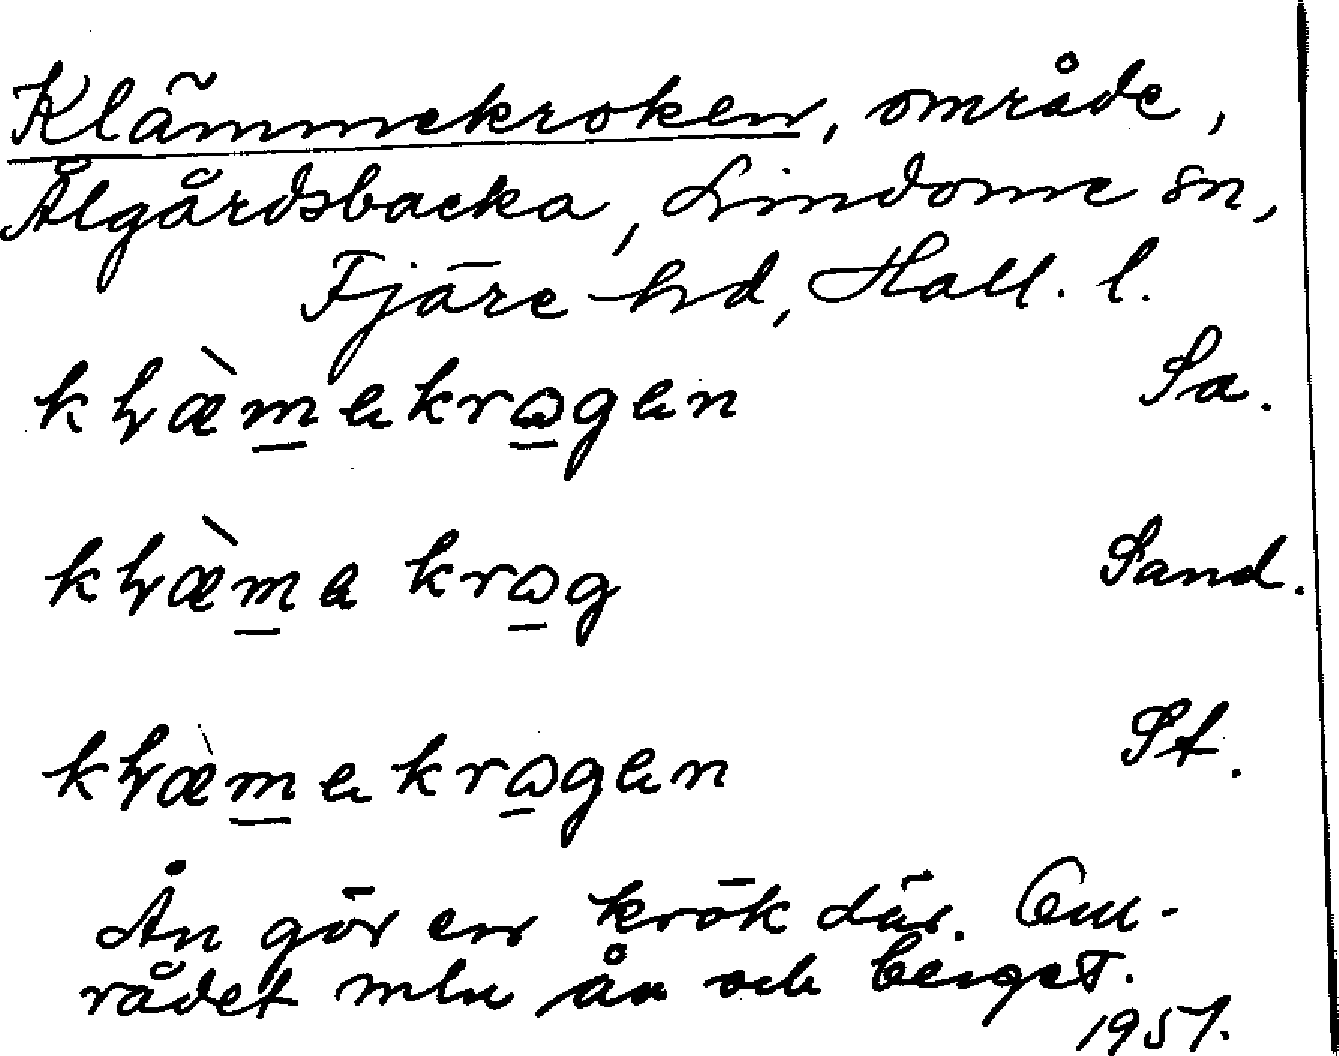 Klämmekroken, område,
Ålgårdsbacka, Lindome sn,
Fjäre hd, Hall. l.
kḷæ̀m̲ekrω̲gen Sa.
kḷæ̀m̲a krω̲g Sand.
kḷæ̀m̲ekrω̲gen St.
Ån gör en krök där. Om-
rådet mln ån och berget.
1957.